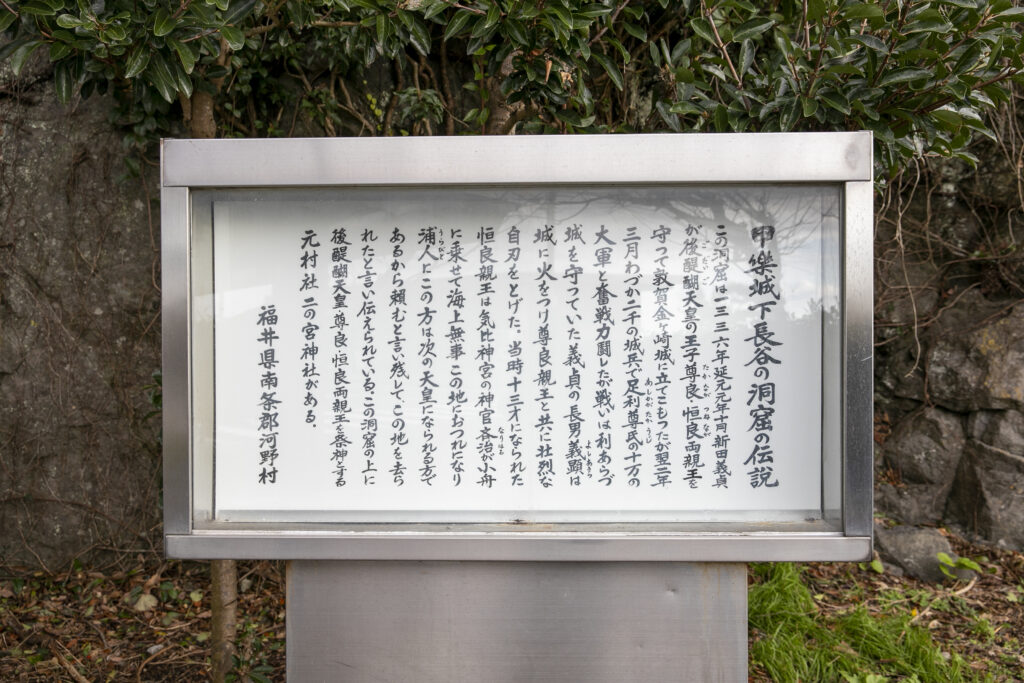 甲樂城下長谷の洞窟の伝説
この洞窟は一三三六年延元元年十月新田義貞
が後醍醐天皇の王子尊良・恒良両親王を
ごだいご
たかなが
つねなが
守って敦賀金ヶ崎城に立てこもったが翌二年
三月わづか二千の城兵で足利尊氏の十万の
あしかがたかうじ
大軍と奮戦力闘したが戦いは利あらづ
城を守っていた義貞の長男義顕は
よしあき
城に火をつけ尊良親王と共に壮烈な
自刃をとげた。当時十三才になられた
恒良親王は気比神宮の神官斉治が小舟
なりはる
に乗せて海上無事この地におつれになり
浦人にこの方は次の天皇になられる方で
うらびと
あるから頼むと言い残して、この地を去ら
れたと言い伝えられている。この洞窟の上に
後醍醐天皇・尊良・恒良両親王を祭神とする
元村社 二の宮神社がある.
福井県南条郡河野村